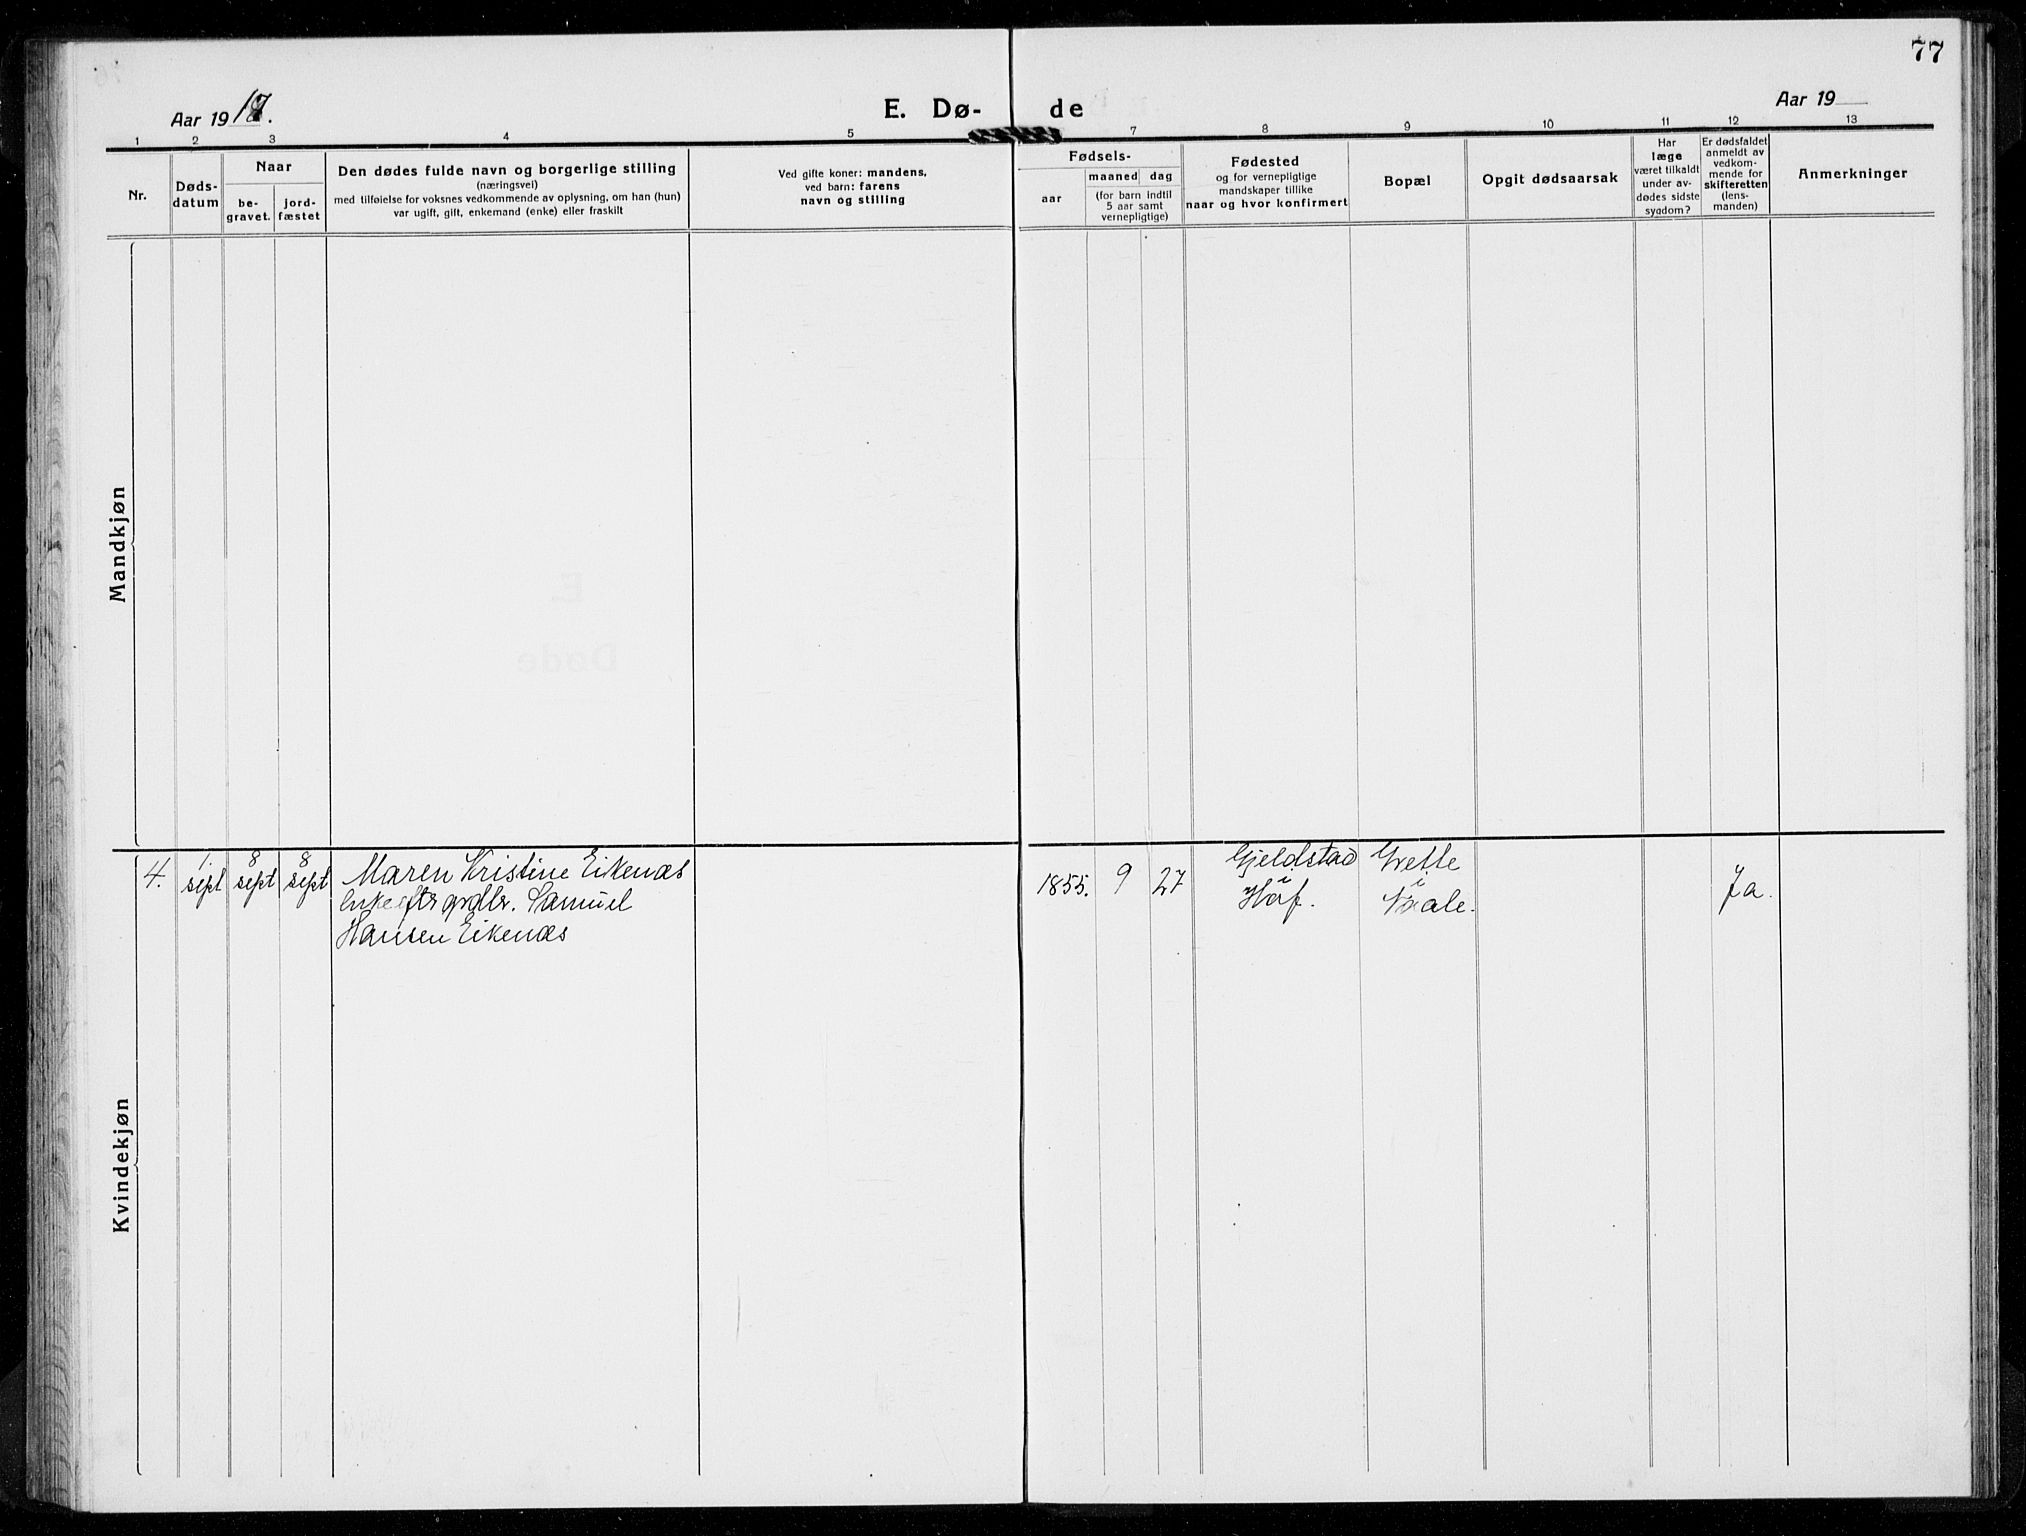 77
Aar 1917.
E. Dø-
de
Aar 19
1 2 3 4 5 7 8 9 10 11 12 13
Nr.
Døds-
datum
Naar
be-
gravet.
jord-
fæstet
Den dødes fulde navn og borgerlige stilling
(næringsvei)
med tilføielse for voksnes vedkommende av oplysning, om han (hun)
var ugift, gift, enkemand (enke) eller fraskilt
Ved gifte koner: mandens,
ved barn: farens
navn og stilling
Fødsels-
aar
maaned dag
(for barn indtil
5 aar samt
vernepligtige)
Fødested
og for vernepligtige
mandskaper tillike
naar og hvor konfirmert
Bopæl
Opgit dødsaarsak
Har
læge
været tilkaldt
under av-
dødes sidste
sygdom?
Er dødsfaldet
anmeldt av
vedkom-
mende for
skifteretten
(lens-
manden)
Anmerkninger
Mandkjøn
Kvindekjøn
4.
1.
sept
8
sept
8
sept
Maren Kristine Eikenæs
Enke efter grdbr. Samuel
Hansen Eikenæs
1855.
9
27
Gjeldstad
i
Hof.
Grette
i
Vaale.
Ja.